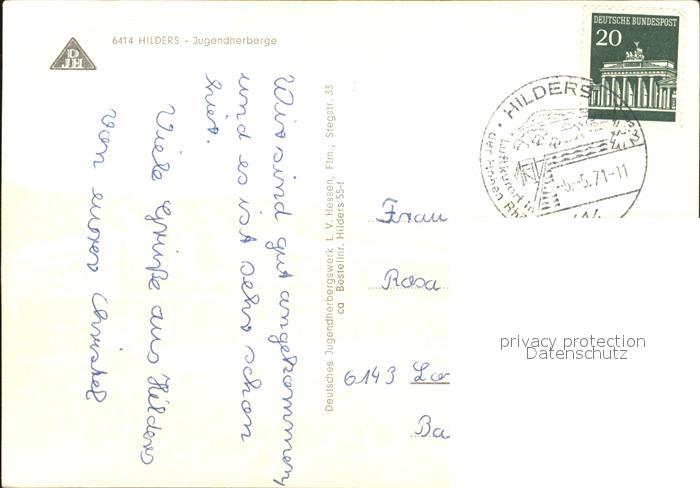 DJH
6414 HILDERS - Jugendherberge
Wir sind gut angekommen
und es ist sehr schön
hier.
Viele Grüße aus Hilders
von eurer Christel
Deutsches Jugendherbergswerk L. V. Hessen, Ffm., Stegstr. 33
ca Bestellnr. Hilders 55-f
DEUTSCHE BUNDESPOST
20
HILDERS
Luftkurort in
der Hohen Rh
-6.-5.71-11
Frau
Rosa
6143 Lo
Ba
privacy protection
Datenschutz